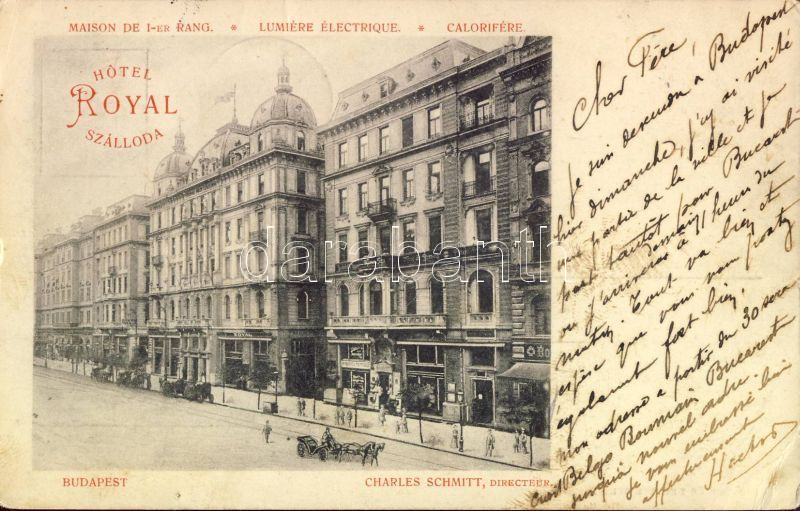 MAISON DE I-ER RANG. * LUMIÈRE ÉLECTRIQUE. * CALORIFÉRE.
HÔTEL
ROYAL
SZÁLLODA
darabanth
BUDAPEST
CHARLES SCHMITT, DIRECTEUR.
Cher Frère,
Je suis descendu a Budapest
hier dimanche, j'y ai visité
une partie de la ville et je
pars tantôt pour Bucarest
ou j'arriverai demain à 11 heures du
matin. Tout va bien et
espère que vous vous portez
également fort bien,
mon adresse a partir du 30 sera
Belge Roumain Bucarest
jusqu'à nouvel ordre.
Je vous embrasse bien
affectueusement